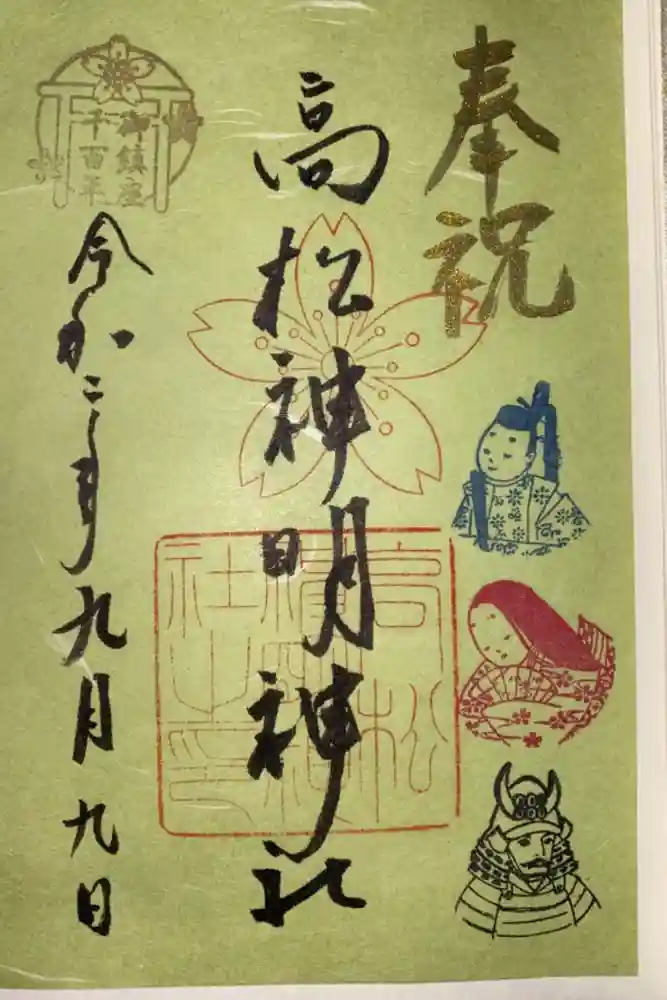 奉祝
高松神明神社
令和二年九月九日
御鎮座
千百年
高松
神明神
社之印